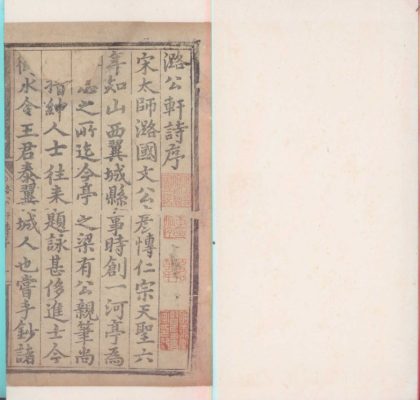 潞公軒詩序
宋太師潞國文公彥愽仁宗天聖六
年知山西翼城縣事時創一河亭為
之所迄今亭之梁有公親筆尚
縉紳人士徃来題詠甚侈進士今
求令王君泰翼城人也嘗手鈔諸